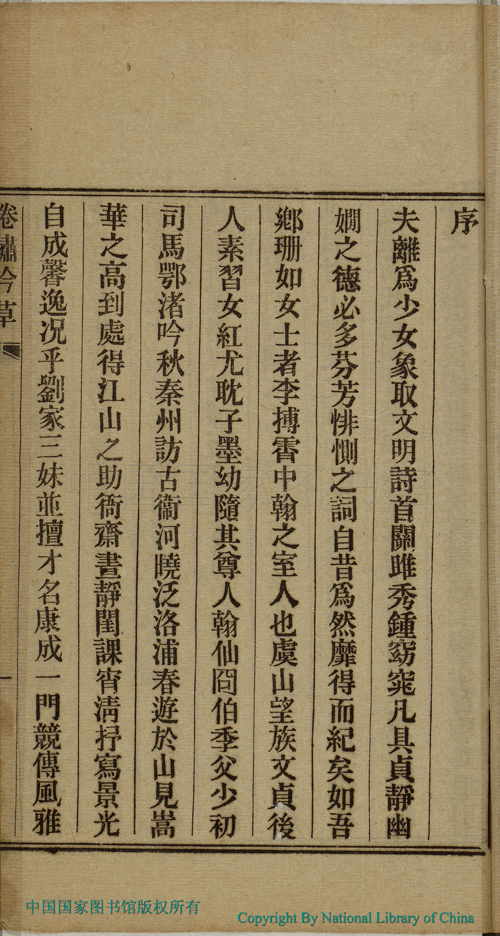 序
夫離爲少女象取文明詩首關雎秀鍾窈窕凡具貞靜幽
嫻之德必多芬芳悱惻之詞自昔爲然靡得而紀矣如吾
鄉珊如女士者李搏霄中翰之室人也虞山望族文貞後
人素習女紅尤耽子墨幼隨其尊人翰仙冏伯季父少初
司馬鄂渚吟秋秦州訪古衞河曉泛洛浦春遊於山見嵩
華之高到處得江山之助衙齋晝靜閨課宵淸抒寫景光
自成馨逸况乎劉家三妹並擅才名康成一門競傳風雅
卷繡吟草
一
中国国家图书馆版权所有
Copyright By National Library of China